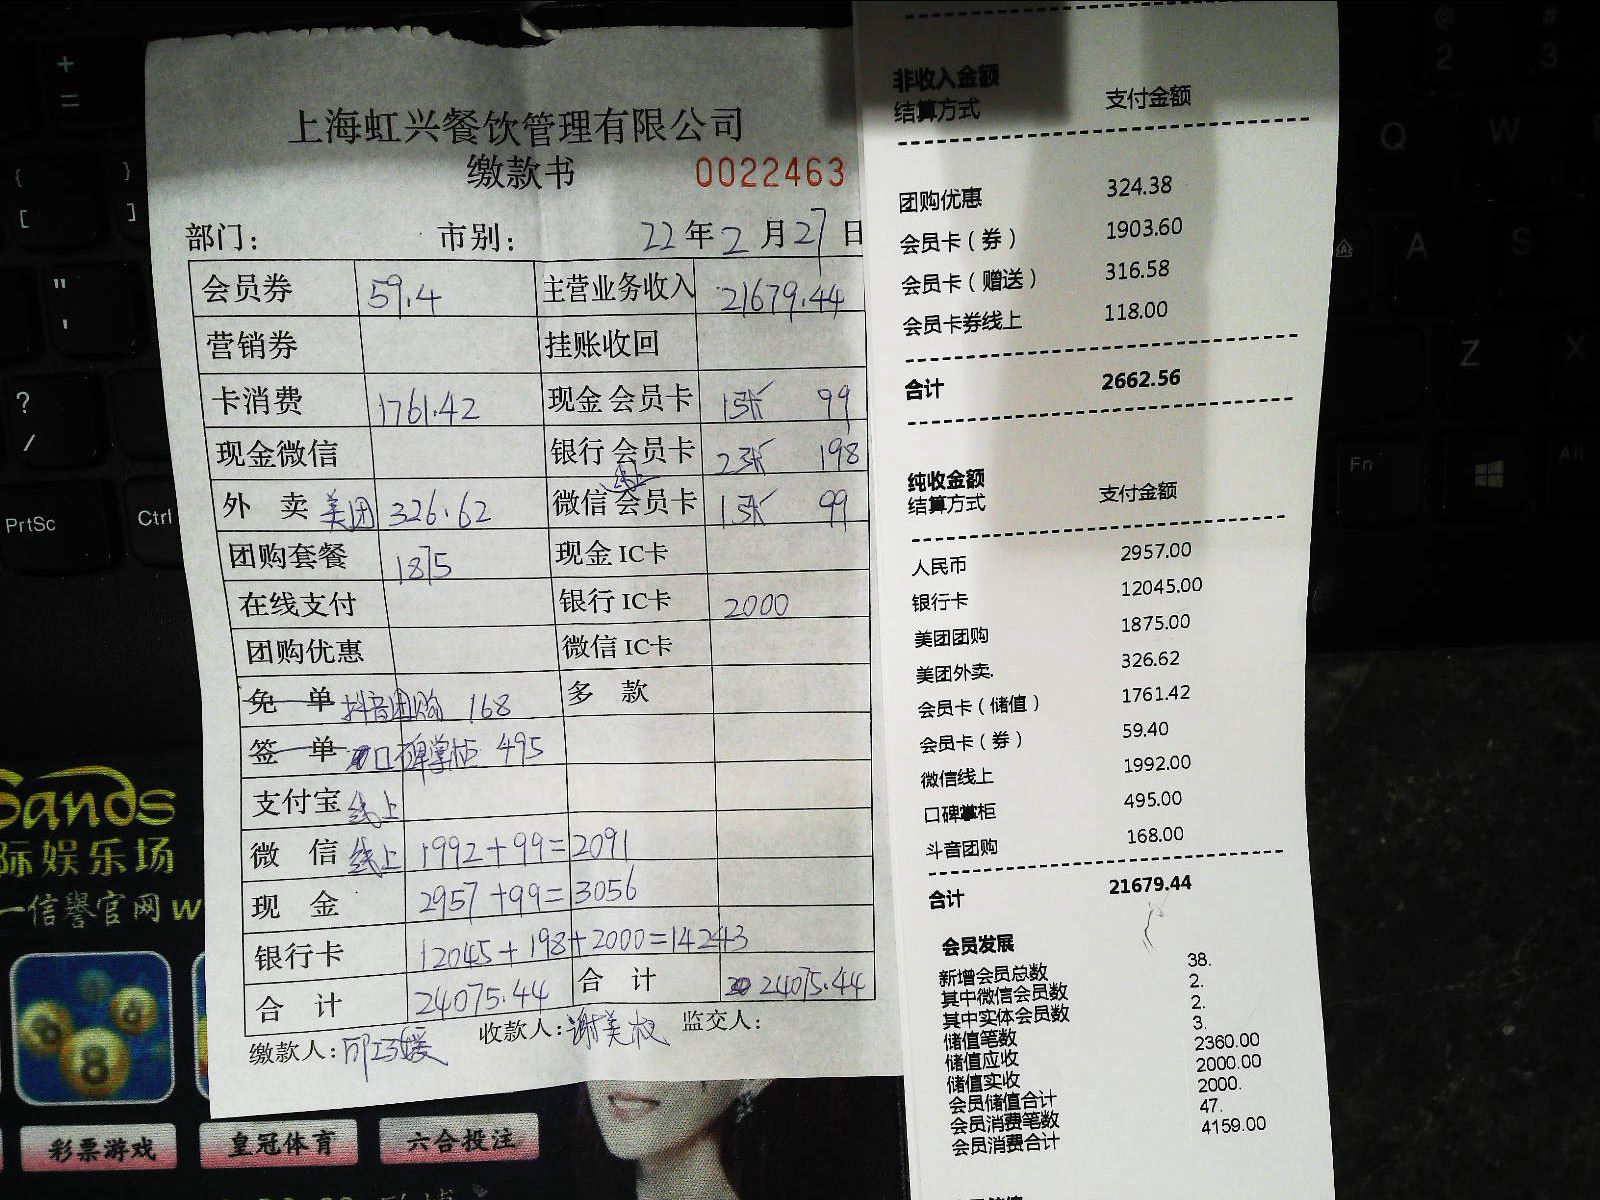 上海虹兴餐饮管理有限公司
缴款书 0022463
部门: 市别: 22年2月27日
会员券 59.4 主营业务收入 21679.44
营销券 挂账收回
卡消费 1761.42 现金会员卡 1张 99
现金微信 银行会员卡 2张 198
外卖 美团 326.62 微信线上会员卡 1张 99
团购套餐 1875 现金IC卡
在线支付 银行IC卡 2000
团购优惠 微信IC卡
免单 抖音团购 168 多款
签单 口碑掌柜 495
支付宝 线上
微信 线上 1992+99=2091
现金 2957+99=3056
银行卡 12045+198+2000=14243
合计 24075.44 合计 24075.44
缴款人: 收款人:谢美 监交人:
非收入金额
结算方式 支付金额
团购优惠 324.38
会员卡(券) 1903.60
会员卡(赠送) 316.58
会员卡券线上 118.00
合计 2662.56
纯收金额
结算方式 支付金额
人民币 2957.00
银行卡 12045.00
美团团购 1875.00
美团外卖. 326.62
会员卡(储值) 1761.42
会员卡(券) 59.40
微信线上 1992.00
口碑掌柜 495.00
斗音团购 168.00
合计 21679.44
会员发展
新增会员总数 38.
其中微信会员数 2.
其中实体会员数 2.
储值笔数 3.
储值应收 2360.00
储值实收 2000.00
会员储值合计 2000.
会员消费笔数 47.
会员消费合计 4159.00
+
=
{ }
[ ]
"
'
?
/
PrtSc Ctrl
@ #
2 3
Q W
A S
Z X
Fn Alt
Sands
际娱乐场
一信誉官网W
8 8 8
彩票游戏 皇冠体育 六合投注